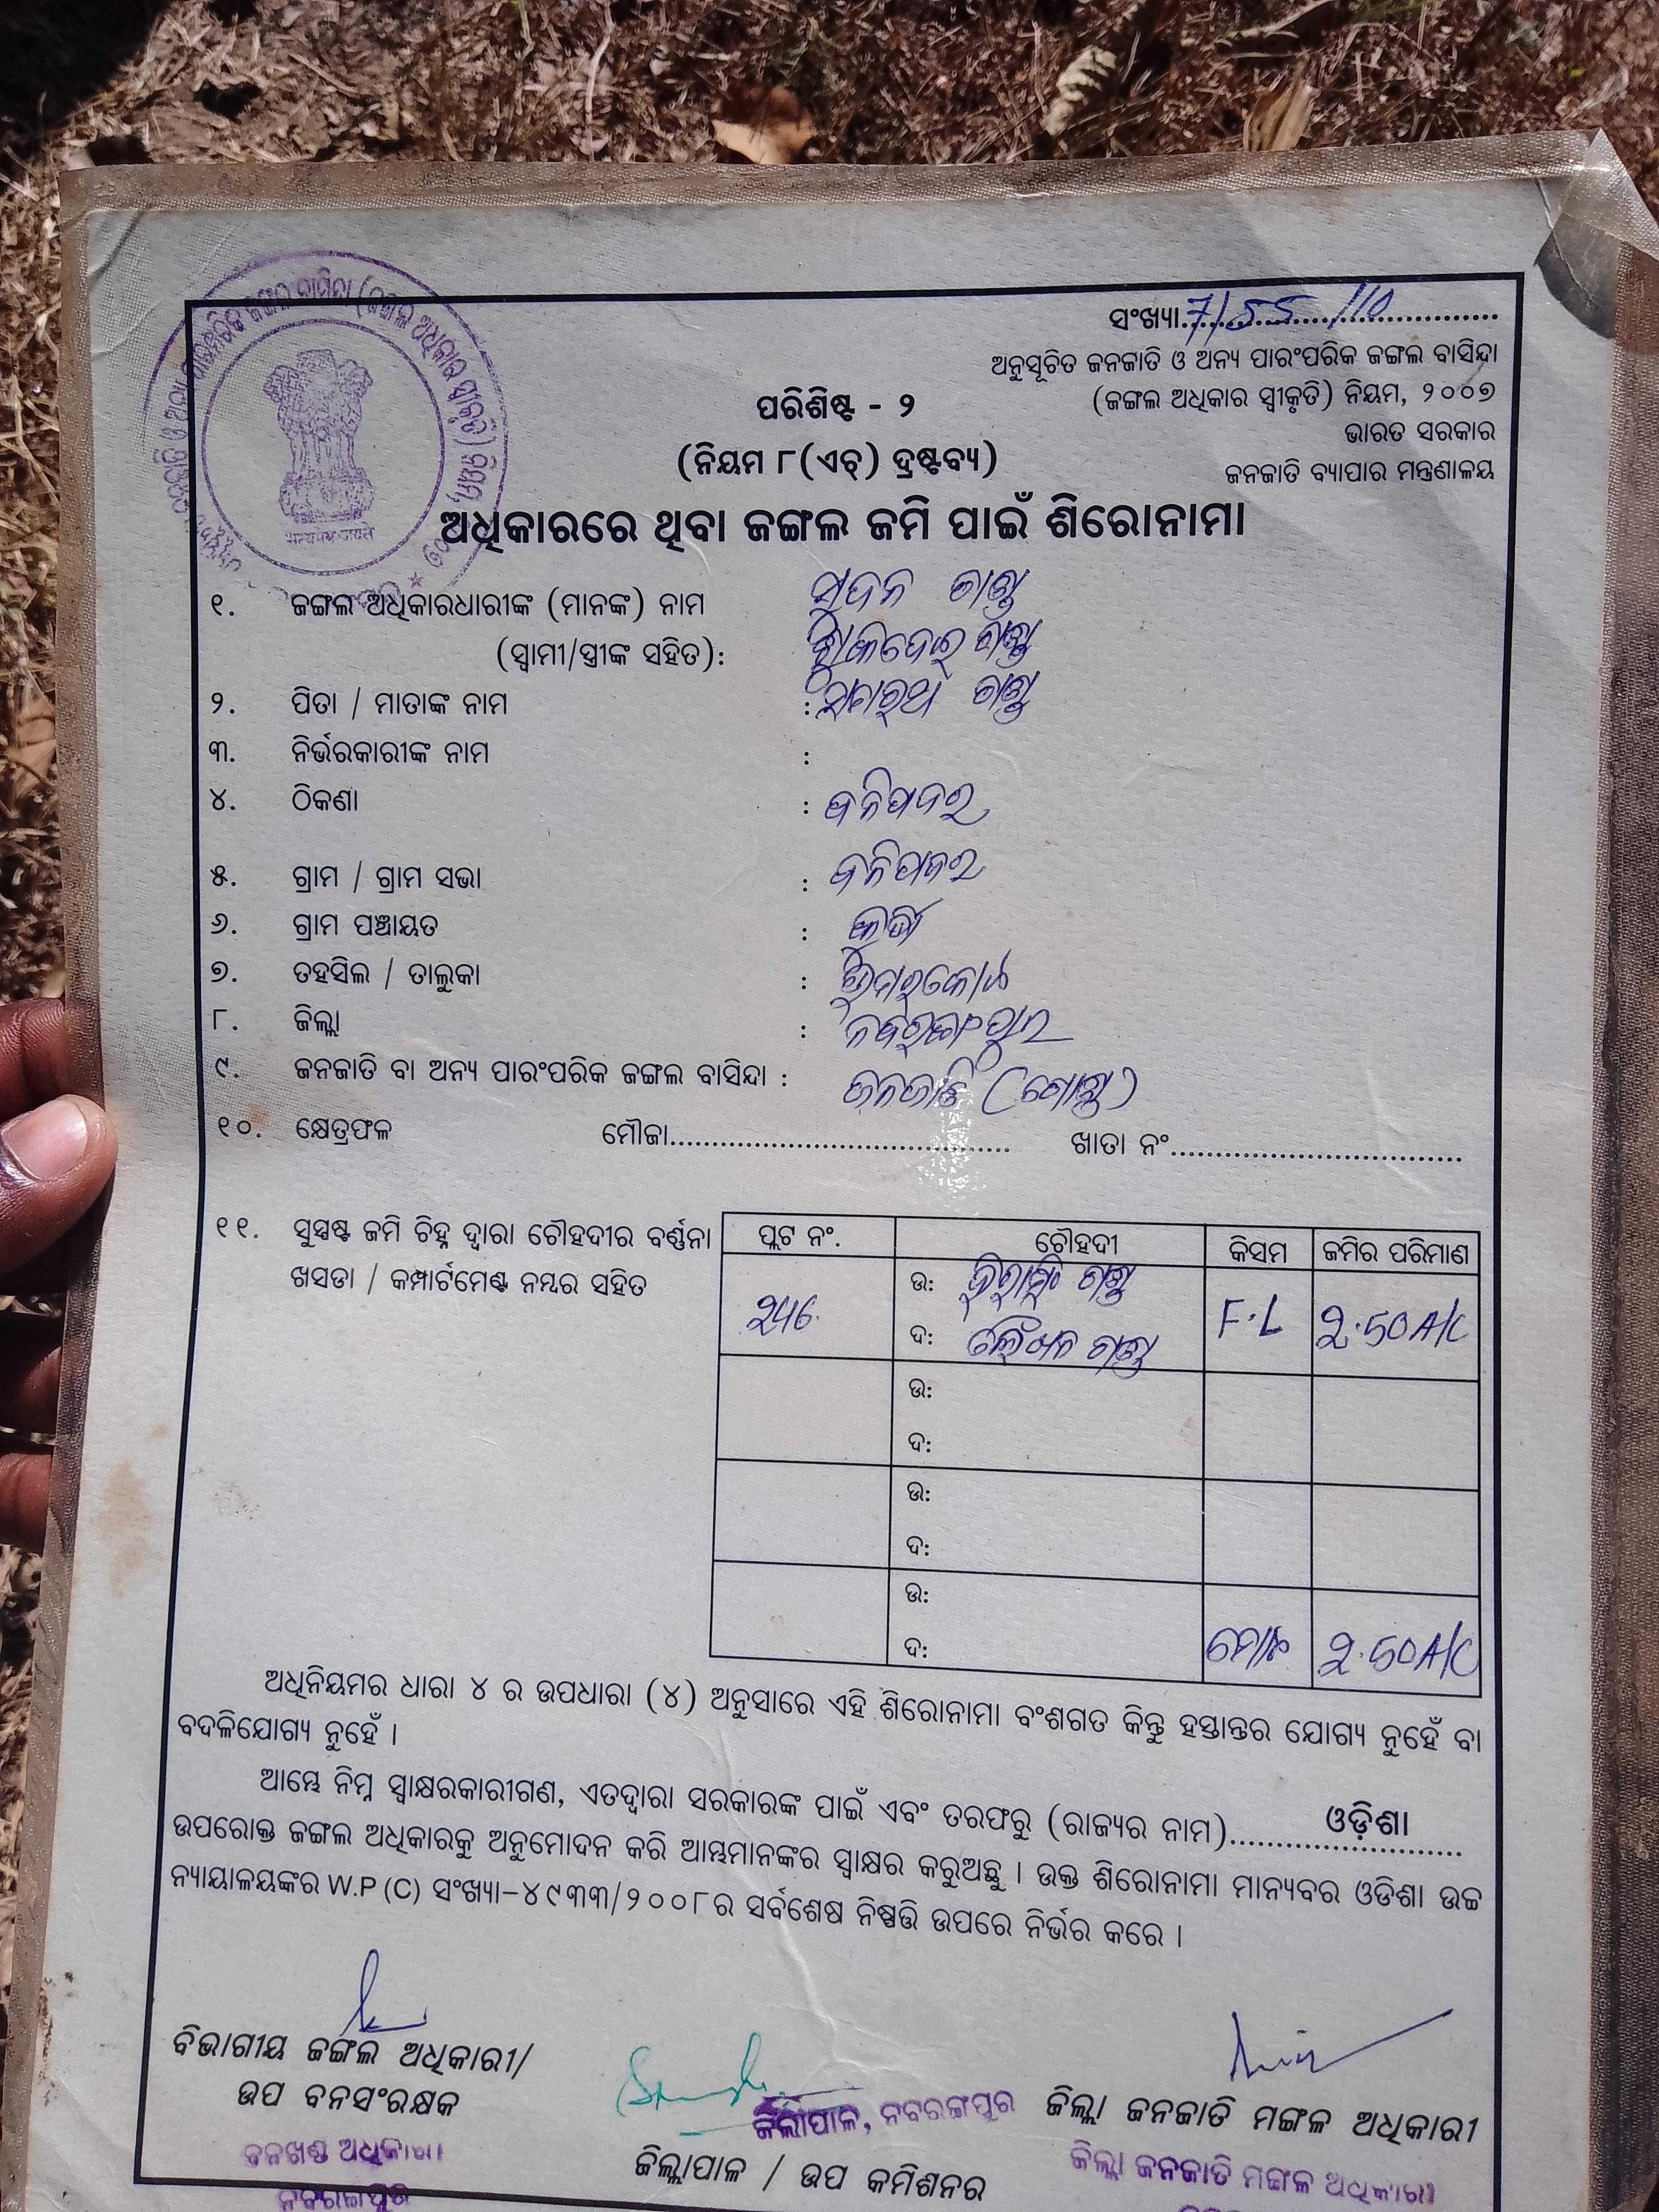 ସଂଖ୍ୟା 7/55/10
ଅନୁସୂଚିତ ଜନଜାତି ଓ ଅନ୍ୟ ପାରଂପରିକ ଜଙ୍ଗଲ ବାସିନ୍ଦା
(ଜଙ୍ଗଲ ଅଧିକାର ସ୍ୱୀକୃତି) ନିୟମ, ୨୦୦୭
ଭାରତ ସରକାର
ଜନଜାତି ବ୍ୟାପାର ମନ୍ତ୍ରଣାଳୟ
ପରିଶିଷ୍ଟ - ୨
(ନିୟମ ୮(ଏଚ୍) ଦ୍ରଷ୍ଟବ୍ୟ)
ଅଧିକାରରେ ଥିବା ଜଙ୍ଗଲ ଜମି ପାଇଁ ଶିରୋନାମା
सत्यमेव जयते
୧. ଜଙ୍ଗଲ ଅଧିକାରଧାରୀଙ୍କ (ମାନଙ୍କ) ନାମ
(ସ୍ୱାମୀ/ସ୍ତ୍ରୀଙ୍କ ସହିତ):
୨. ପିତା / ମାତାଙ୍କ ନାମ :
୩. ନିର୍ଭରକାରୀଙ୍କ ନାମ :
୪. ଠିକଣା :
୫. ଗ୍ରାମ / ଗ୍ରାମ ସଭା :
୬. ଗ୍ରାମ ପଞ୍ଚାୟତ :
୭. ତହସିଲ / ତାଲୁକା : ଉମରକୋଟ
୮. ଜିଲ୍ଲା : ନବରଙ୍ଗପୁର
୯. ଜନଜାତି ବା ଅନ୍ୟ ପାରଂପରିକ ଜଙ୍ଗଲ ବାସିନ୍ଦା : ଜନଜାତି (ଗୋଣ୍ଡ)
୧୦. କ୍ଷେତ୍ରଫଳ ମୌଜା.................... ଖାତା ନଂ....................
୧୧. ସୁସ୍ପଷ୍ଟ ଜମି ଚିହ୍ନ ଦ୍ୱାରା ଚୌହଦୀର ବର୍ଣ୍ଣନା
ଖସଡା / କମ୍ପାର୍ଟମେଣ୍ଟ ନମ୍ବର ସହିତ
ପ୍ଲଟ ନଂ. ଚୌହଦୀ କିସମ ଜମିର ପରିମାଣ
ଉ:
ଦ: F.L ୨.50 A/C
ଉ:
ଦ:
ଉ:
ଦ:
ଉ:
ଦ: ମୋଟ ୨.50 A/C
ଅଧିନିୟମର ଧାରା ୪ ର ଉପଧାରା (୪) ଅନୁସାରେ ଏହି ଶିରୋନାମା ବଂଶଗତ କିନ୍ତୁ ହସ୍ତାନ୍ତର ଯୋଗ୍ୟ ନୁହେଁ ବା
ବଦଳିଯୋଗ୍ୟ ନୁହେଁ ।
ଆମ୍ଭେ ନିମ୍ନ ସ୍ୱାକ୍ଷରକାରୀଗଣ, ଏତଦ୍ୱାରା ସରକାରଙ୍କ ପାଇଁ ଏବଂ ତରଫରୁ (ରାଜ୍ୟର ନାମ) ଓଡ଼ିଶା
ଉପରୋକ୍ତ ଜଙ୍ଗଲ ଅଧିକାରକୁ ଅନୁମୋଦନ କରି ଆମ୍ଭମାନଙ୍କର ସ୍ୱାକ୍ଷର କରୁଅଛୁ । ଉକ୍ତ ଶିରୋନାମା ମାନ୍ୟବର ଓଡିଶା ଉଚ୍ଚ
ନ୍ୟାୟାଳୟଙ୍କର W.P (C) ସଂଖ୍ୟା-୪୯୩୩/୨୦୦୮ର ସର୍ବଶେଷ ନିଷ୍ପତ୍ତି ଉପରେ ନିର୍ଭର କରେ ।
ବିଭାଗୀୟ ଜଙ୍ଗଲ ଅଧିକାରୀ/
ଉପ ବନସଂରକ୍ଷକ
ବନଖଣ୍ଡ ଅଧିକାରୀ
ନବରଙ୍ଗପୁର
ଜିଲ୍ଲାପାଳ, ନବରଙ୍ଗପୁର
ଜିଲ୍ଲାପାଳ / ଉପ କମିଶନର
ଜିଲ୍ଲା ଜନଜାତି ମଙ୍ଗଳ ଅଧିକାରୀ
ଜିଲ୍ଲା ଜନଜାତି ମଙ୍ଗଳ ଅଧିକାରୀ